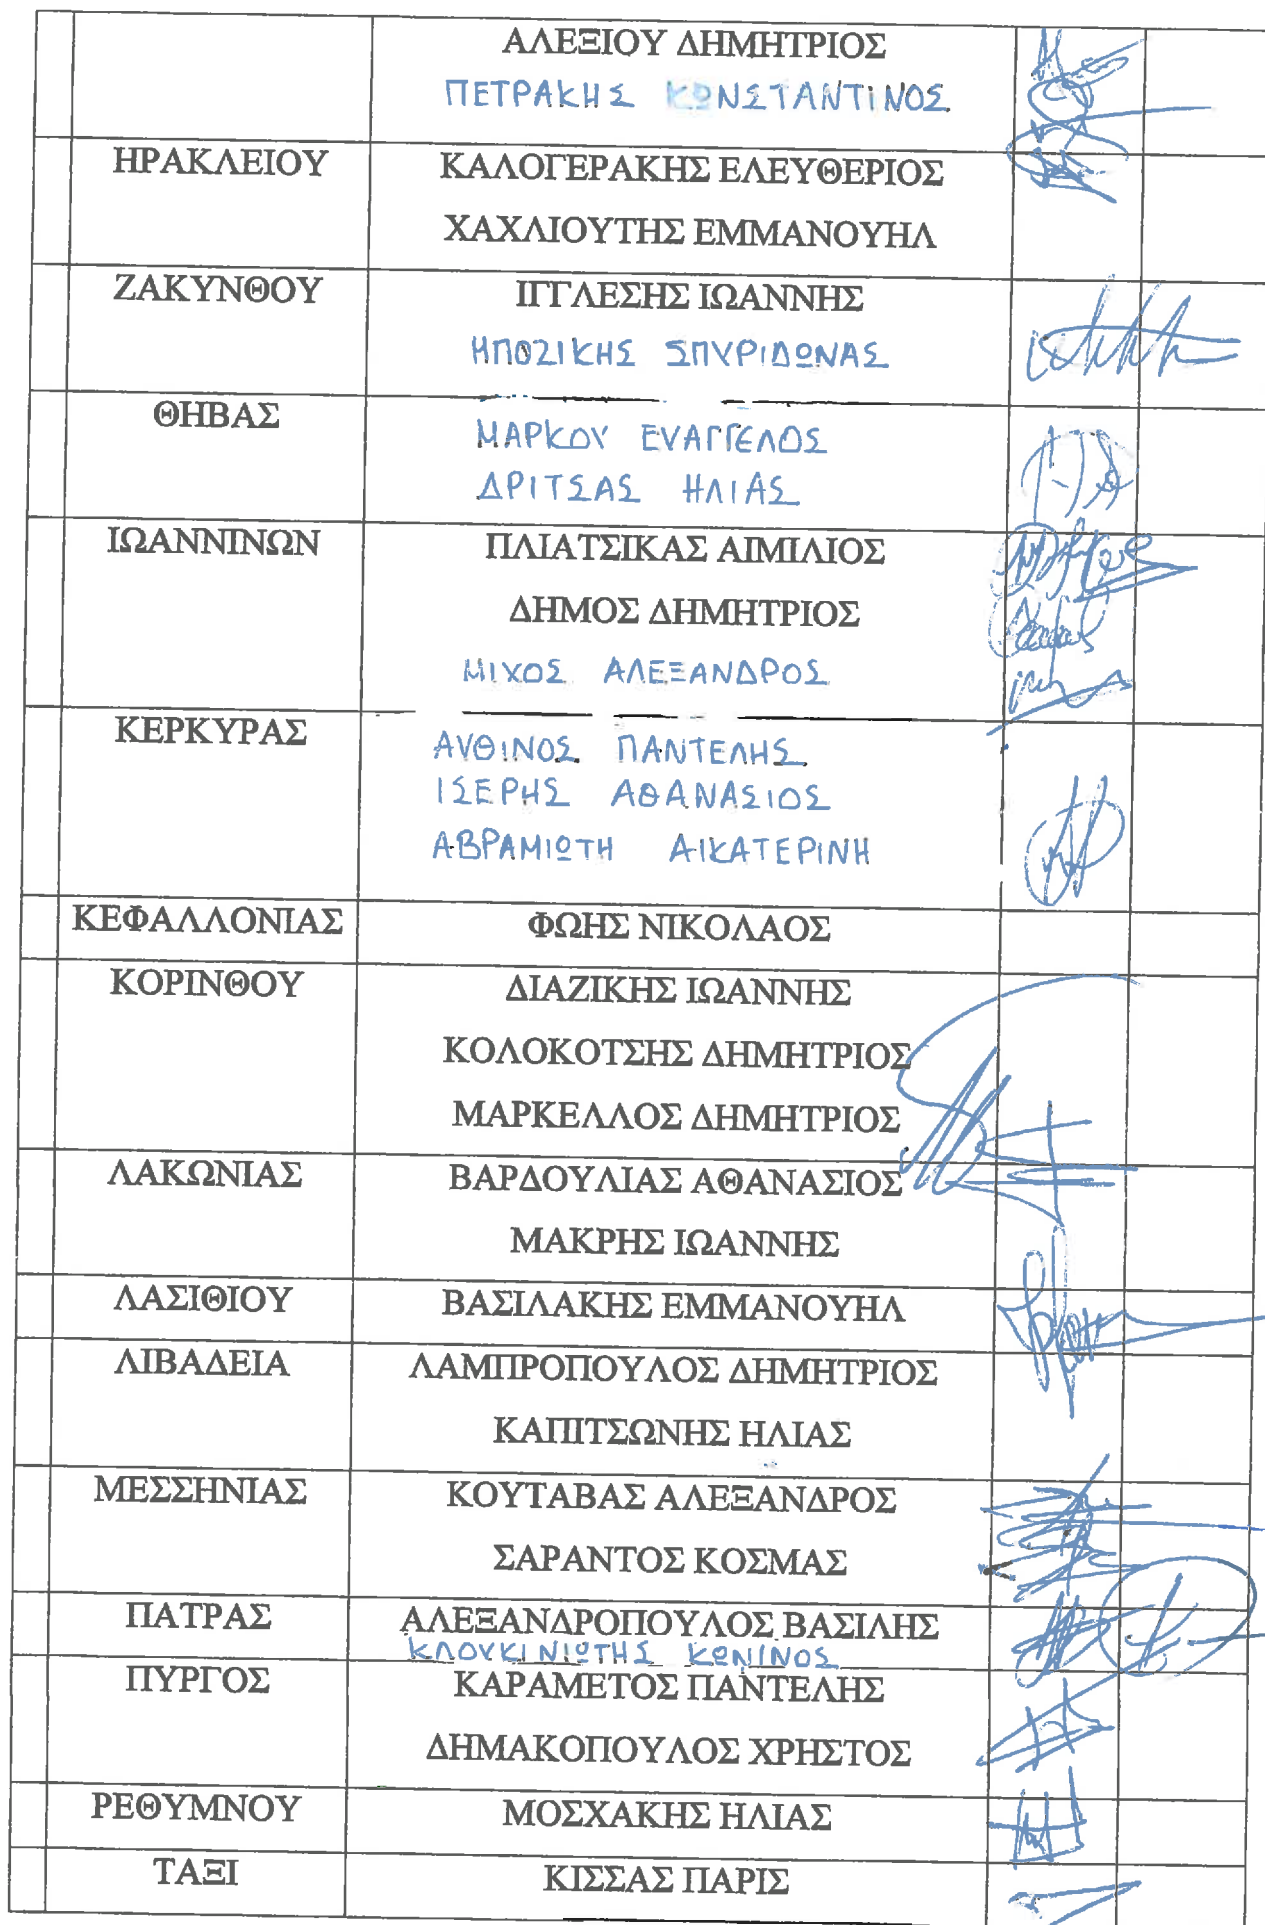 ΑΛΕΞΙΟΥ ΔΗΜΗΤΡΙΟΣ
ΠΕΤΡΑΚΗΣ ΚΩΝΣΤΑΝΤΙΝΟΣ
ΗΡΑΚΛΕΙΟΥ ΚΑΛΟΓΕΡΑΚΗΣ ΕΛΕΥΘΕΡΙΟΣ
ΧΑΧΛΙΟΥΤΗΣ ΕΜΜΑΝΟΥΗΛ
ΖΑΚΥΝΘΟΥ ΙΓΓΛΕΣΗΣ ΙΩΑΝΝΗΣ
ΜΠΟΖΙΚΗΣ ΣΠΥΡΙΔΩΝΑΣ
ΘΗΒΑΣ
ΜΑΡΚΟΥ ΕΥΑΓΓΕΛΟΣ
ΔΡΙΤΣΑΣ ΗΛΙΑΣ
ΙΩΑΝΝΙΝΩΝ ΠΛΙΑΤΣΙΚΑΣ ΑΙΜΙΛΙΟΣ
ΔΗΜΟΣ ΔΗΜΗΤΡΙΟΣ
ΜΙΧΟΣ ΑΛΕΞΑΝΔΡΟΣ
ΚΕΡΚΥΡΑΣ
ΑΥΘΙΝΟΣ ΠΑΝΤΕΛΗΣ
ΙΣΕΡΗΣ ΑΘΑΝΑΣΙΟΣ
ΑΒΡΑΜΙΩΤΗ ΑΙΚΑΤΕΡΙΝΗ
ΚΕΦΑΛΛΟΝΙΑΣ ΦΩΗΣ ΝΙΚΟΛΑΟΣ
ΚΟΡΙΝΘΟΥ ΔΙΑΖΙΚΗΣ ΙΩΑΝΝΗΣ
ΚΟΛΟΚΟΤΣΗΣ ΔΗΜΗΤΡΙΟΣ
ΜΑΡΚΕΛΛΟΣ ΔΗΜΗΤΡΙΟΣ
ΛΑΚΩΝΙΑΣ ΒΑΡΔΟΥΛΙΑΣ ΑΘΑΝΑΣΙΟΣ
ΜΑΚΡΗΣ ΙΩΑΝΝΗΣ
ΛΑΣΙΘΙΟΥ ΒΑΣΙΛΑΚΗΣ ΕΜΜΑΝΟΥΗΛ
ΛΙΒΑΔΕΙΑ ΛΑΜΠΡΟΠΟΥΛΟΣ ΔΗΜΗΤΡΙΟΣ
ΚΑΠΙΤΣΩΝΗΣ ΗΛΙΑΣ
ΜΕΣΣΗΝΙΑΣ ΚΟΥΤΑΒΑΣ ΑΛΕΞΑΝΔΡΟΣ
ΣΑΡΑΝΤΟΣ ΚΟΣΜΑΣ
ΠΑΤΡΑΣ ΑΛΕΞΑΝΔΡΟΠΟΥΛΟΣ ΒΑΣΙΛΗΣ
ΚΛΟΥΚΙΝΙΩΤΗΣ ΚΩΝ/ΝΟΣ
ΠΥΡΓΟΣ ΚΑΡΑΜΕΤΟΣ ΠΑΝΤΕΛΗΣ
ΔΗΜΑΚΟΠΟΥΛΟΣ ΧΡΗΣΤΟΣ
ΡΕΘΥΜΝΟΥ ΜΟΣΧΑΚΗΣ ΗΛΙΑΣ
ΤΑΞΙ ΚΙΣΣΑΣ ΠΑΡΙΣ